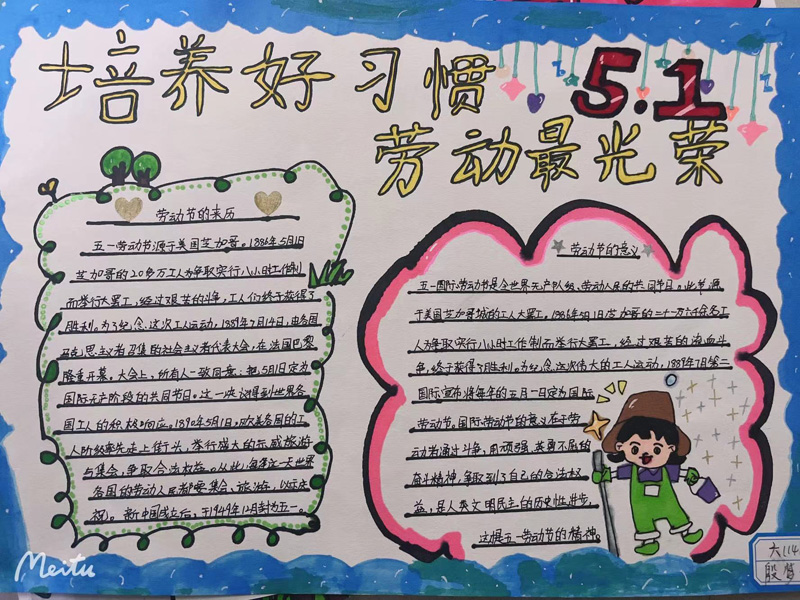 培养好习惯
5.1
劳动最光荣
劳动节的来历
五一劳动节源于美国芝加哥。1886年5月1日
芝加哥的20多万工人为争取实行八小时工作制
而举行大罢工,经过艰苦的斗争,工人们终于获得了
胜利。为了纪念这次工人运动,1889年7月14日,由各国
马克思主义者召集的社会主义者代表大会,在法国巴黎
隆重开幕。大会上,所有人一致同意:把5月1日定为
国际无产阶段的共同节日。这一决议得到世界各
国工人的积极响应。1890年5月1日,欧美各国的工
人阶级率先走上街头,举行盛大的示威旅游
与集会,争取合法权益。从此,每逢这一天世界
各国的劳动人民都要集会、旅游,以示庆
祝。新中国成立后,于1949年12月封为五一。
劳动节的意义
五一国际劳动节是全世界无产阶级、劳动人民的共同节日。此节源
于美国芝加哥城的工人大罢工,1986年5月1日芝加哥的二十一万六千余名工
人为争取实行八小时工作制而举行大罢工,经过艰苦的流血斗
争,终于获得了胜利。为纪念这次伟大的工人运动,1889年7月第二
国际宣布将每年的五月一日定为国际
劳动节。国际劳动节的意义在于劳
动者通过斗争,用顽强、英勇不屈的
奋斗精神,争取到了自己的合法权
益,是人类文明民主的历史性进步,
这便是五一劳动节的精神。
六(14
殷
Meitu